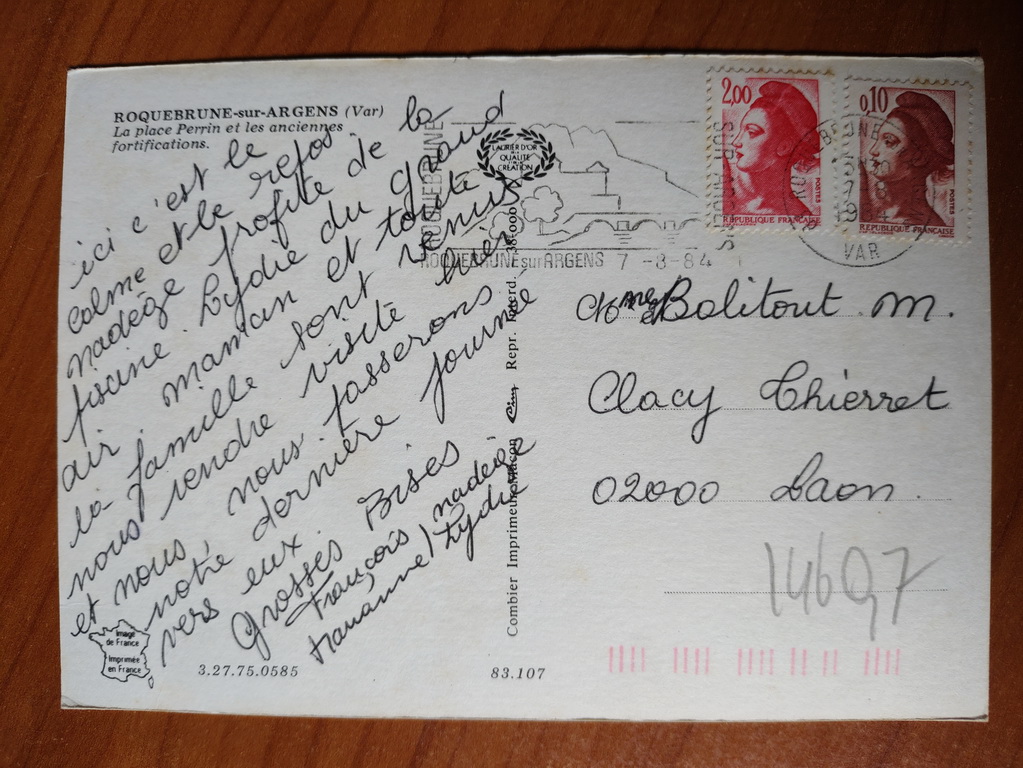 ROQUEBRUNE-sur-ARGENS (Var)
La place Perrin et les anciennes
fortifications.
ici c'est le
calme et le repos
nadège profite de la
piscine. Lydie du grand
air maman et toute
la famille sont venus
nous rendre visite hier
et nous, nous passerons
notre dernière journée
vers eux.
Grosses Bises
François nadège
maminne/Lydie
Image
de France
Imprimée
en France
3.27.75.0585
83.107
Combier Imprimeur Macon Cim Repr. Interd. 38t000
LAURIER D'OR
DE LA
QUALITÉ
CRÉATION
ROQUEBRUNE
SUR ARGENS
ROQUEBRUNE sur ARGENS 7 -8-84
2,00
POSTES
RÉPUBLIQUE FRANÇAISE
0,10
POSTES
RÉPUBLIQUE FRANÇAISE
VAR
Mme et Balitout M.
Clacy Thierret
02000 Laon.